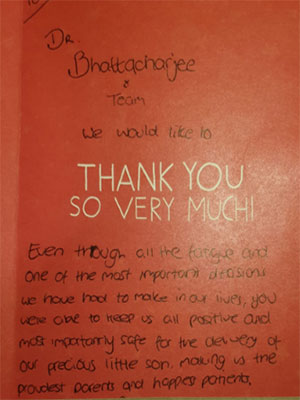 Dr.
Bhattacharjee
&
Team
We would like to
THANK YOU
SO VERY MUCH!
Even through all the fatigue and
one of the most important decisions
we have had to make in our lives, you
were able to keep us all positive and
most importantly safe for the delivery of
our precious little son. making us the
proudest parents and happiest patients.